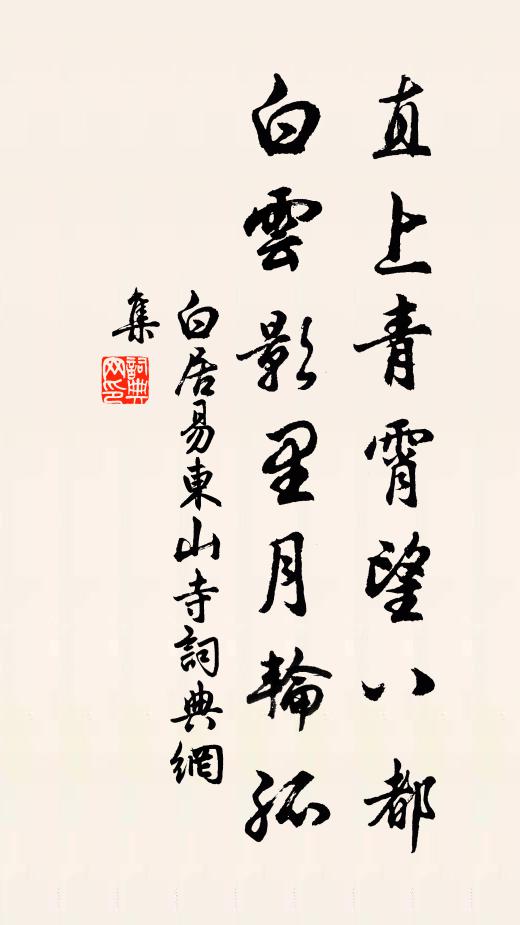 直上青霄望八都
白雲影里月輪孤
白居易東山寺詞典網
集
詞典
网印